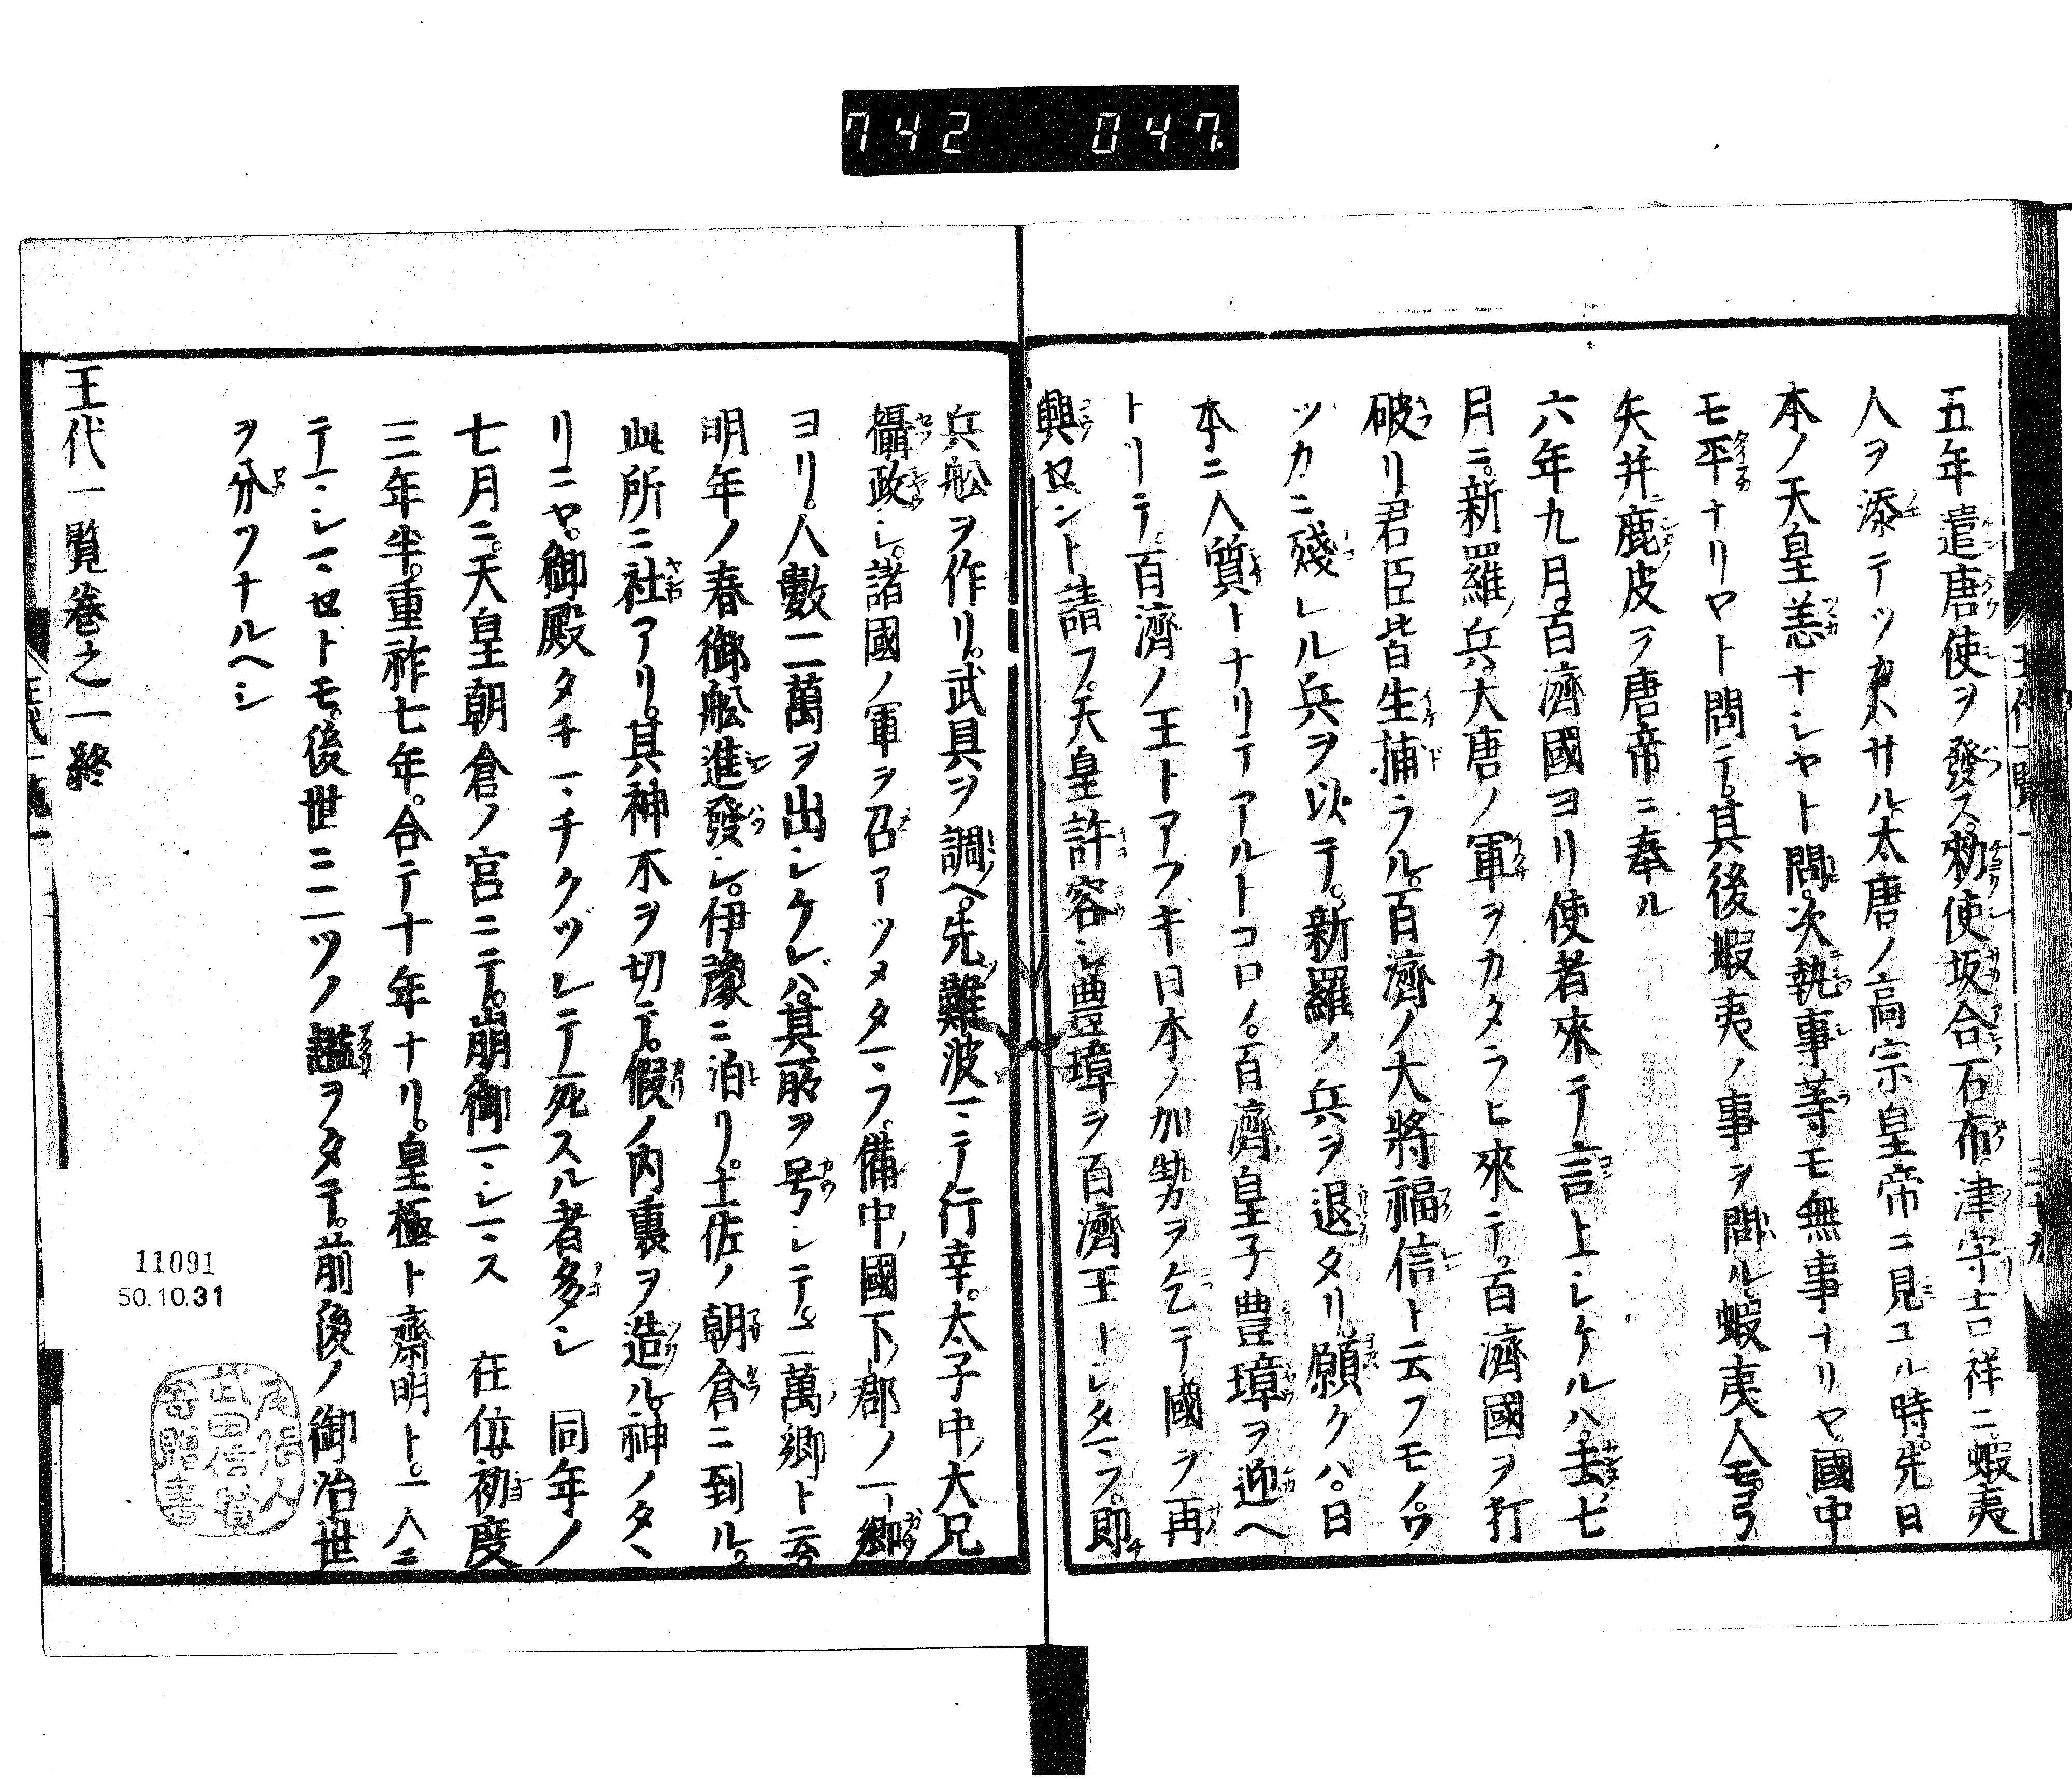 742 047.
五年遣唐使ヲ發ス。勑使坂合石布。津守吉祥ニ。蝦夷
人ヲ添テツカハサル。大唐ノ高宗皇帝ニ見ユル時。先日
本ノ天皇恙ナシヤト問。次執事等モ無事ナリヤ。國中
モ平ナリヤト問テ。其後蝦夷ノ事ヲ問ル。蝦夷人モ。弓
矢并鹿皮ヲ唐帝ニ奉ル
六年九月。百濟國ヨリ使者來テ言上シケルハ。去ル七
月ニ。新羅ノ兵。大唐ノ軍ヲカタラヒ來テ。百濟國ヲ打
破リ君臣皆生捕ラル。百濟ノ大將福信ト云フモノ。ワ
ツカニ殘レル兵ヲ以テ。新羅ノ兵ヲ退タリ。願クハ。日
本ニ人質トナリテアルトコロノ。百濟皇子豊璋ヲ迎ヘ
トリテ。百濟ノ王トアフキ日本ノ加勢ヲ乞テ國ヲ再
興セント請フ。天皇許容シ豊璋ヲ百濟王トシタマフ。即
兵舩ヲ作リ。武具ヲ調ヘ。先難波マテ行幸。太子中ノ大兄
攝政シ。諸國ノ軍ヲ召アツメタマフ。備中ノ國下ノ郡ノ一郷
ヨリ。人數二萬ヲ出シケレバ。其所ヲ号シテ。二萬ノ郷ト云。
明年ノ春御舩進發シ。伊豫ニ泊リ。土佐ノ朝倉ニ到ル。
此所ニ社アリ。其神木ヲ切テ。假ノ内裏ヲ造ル。神ノタヽ
リニヤ。御殿タチマチクヅレテ死スル者多シ 同年ノ
七月ニ。天皇朝倉ノ宮ニテ。崩御マシマス 在位。初度
三年半。重祚七年。合テ十年ナリ。皇極ト齋明ト。一人ニ
テマシマセトモ。後世ニ二ツノ謚ヲタテ。前後ノ御治世
ヲ分ツナルヘシ
王代一覧巻之一終
11091
50.10.31
尾張人
武田信賢
寄贈書